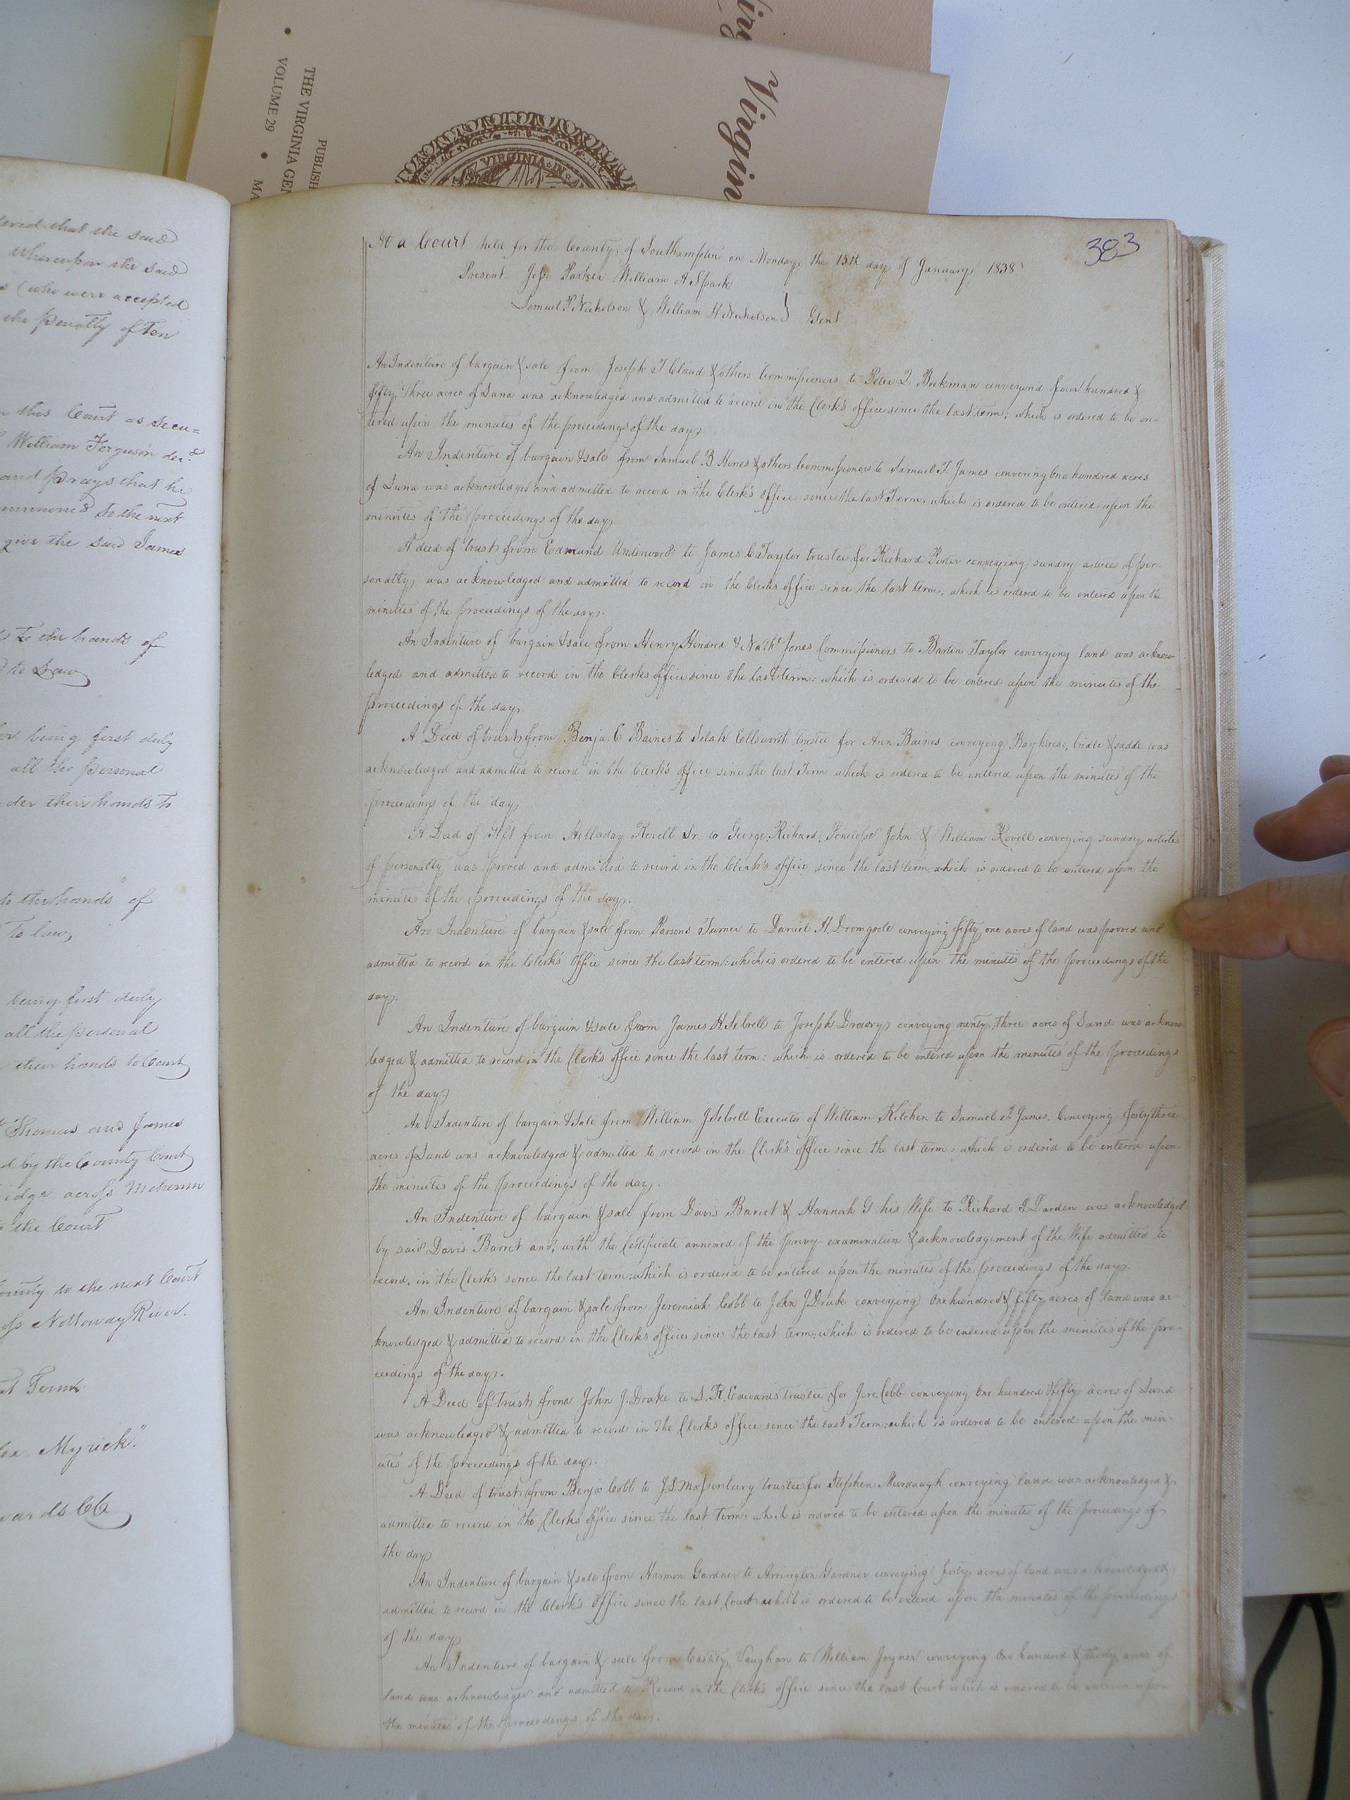 Virgin
PUBLISH
THE VIRGINIA GEN
VOLUME 29 • MA
VIRGINIA
383
At a Court held for the County of Southampton on Monday the 15th day of January 1838
Present Jos. Parker William A. Spark
Samuel P. Nicholson & William H Nicholson } Gent
An Indenture of bargain & sale from Joseph T Claud & others Commissioners to Peter J. Beekman conveying four hundred &
fifty three acres of Land was acknowledged and admitted to record in the Clerk's office since the last term; which is ordered to be en-
tered upon the minutes of the proceedings of the day
An Indenture of bargain & sale from Samuel B Hines & others Commissioners to Samuel F. James conveying One hundred acres
of Land was acknowledged and admitted to record in the Clerk's office since the last Term which is ordered to be entered upon the
minutes of the proceedings of the day
A deed of trust from Edmund Underwood to James C Taylor trustee for Richard Porter conveying sundry articles of per-
sonalty, was acknowledged and admitted to record in the Clerks office since the last term, which is ordered to be entered upon the
minutes of the proceedings of the day.
An Indenture of bargain & sale from Henry Hendred & Nathl Jones Commissioners to Bartin Taylor conveying land was acknow-
ledged and admitted to record in the Clerks office since the last term: which is ordered to be entered upon the minutes of the
proceedings of the day
A Deed of trust from Benja. C Baines to Selah Ellsworth trustee for Ann Baines conveying Bay horse, bridle & saddle was
acknowledged and admitted to record in the Clerk's office since the last Term which is ordered to be entered upon the minutes of the
proceedings of the day
A Deed of Gift from Holladay Revell Sr. to George, Richard, Penelope John & William Revell conveying sundry articles
of personalty was proved and admitted to record in the Clerk's office since the last term which is ordered to be entered upon the
minutes of the proceedings of the day.
An Indenture of bargain & sale from Parsons Turner to Daniel H. Dromgoole conveying fifty one acres of land was proved and
admitted to record in the Clerks' Office since the last term; which is ordered to be entered upon the minutes of the proceedings of the
day.
An Indenture of bargain & sale from James H. Sebrell to Joseph Drewry conveying ninety three acres of Land was acknow
ledged & admitted to record in the Clerk's office since the last term: which is ordered to be entered upon the minutes of the proceedings
of the day
An Indenture of bargain & sale from William J Sebrell Executor of William Kitchen to Samuel F. James Conveying forty three
acres of Land was acknowledged & admitted to record in the Clerk's office since the last term: which is ordered to be entered upon
the minutes of the proceedings of the day.
An Indenture of bargain & sale from Davis Barret & Hannah G his Wife to Richard J. Darden was acknowledged
by said Davis Barret and, with the Certificate annexed of the privy examination & acknowledgement of the Wife admitted to
record, in the Clerk's since the last term: which is ordered to be entered upon the minutes of the proceedings of the day.
An Indenture of bargain & sale from Jeremiah Cobb to John J Drake conveying One hundred & fifty acres of land was ac-
knowledged & admitted to record in the Clerk's office since the last term, which is ordered to be entered upon the minutes of the pro-
ceedings of the day.
A Deed of trust from John J. Drake to L. R. Edwards trustee for Jere Cobb conveying One hundred & fifty acres of Land
was acknowledged & admitted to record in the Clerks office since the last Term: which is ordered to be entered upon the min-
utes of the proceedings of the day.
A Deed of trust from Benja Cobb to J. D. Massenburg trustee for Stephen Murdaugh conveying land was acknowledged &
admitted to record in the Clerk's office since the last term which is ordered to be entered upon the minutes of the proceedings of
the day
An Indenture of bargain & sale from Harmon Gardner to Arrington Gardner conveying forty acres of land was acknowledged &
admitted to record in the Clerk's Office since the last Court which is ordered to be entered upon the minutes of the proceedings
of the day
An Indenture of bargain & sale from Vaughan to William Joyner conveying One hundred & thirty acres of
land was acknowledged and admitted to Record in the Clerk's office since the last Court which is ordered to be entered upon
the minutes of the proceedings of the day.
dered that the said
whereupon the said
(who were accepted
the penalty of Ten
this Court as Secu=
William Ferguson decd
and prays that he
summoned to the next
give the said James
to the hands of
to Law
being first duly
all the personal
der their hands to
to the hands" of
to law,
being first duly
all the personal
their hands to Court
Thomas and James
d by the County Court
idge across Meherrin
the Court
County to the next Court
Nottoway River.
Term
Myrick."
wards CC